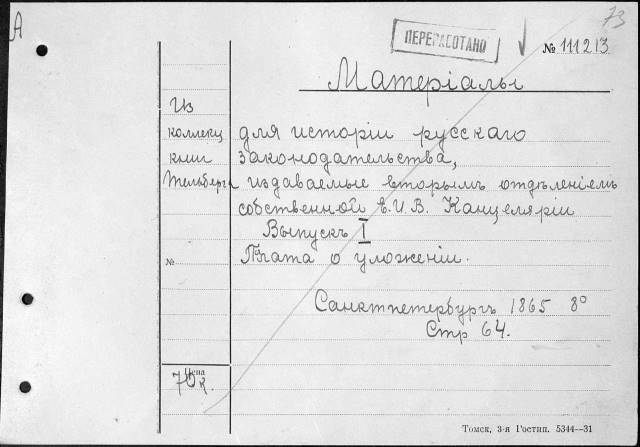 А
73
ПЕРЕРАБОТАНО
№ 111213
Матеріалы
Из
коллекц
книг
Тельберга
для исторіи русскаго
законодательства,
издаваемые вторымъ отдѣленіемъ
собственной Е.И.В. Канцеляріи
Выпускъ I
Плата о уложеніи.
№
Санктпетербургъ 1865 8°
Стр 64.
Цена
70к.
Томск, 3-я Гостип. 5344—31